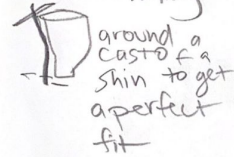 around a
cast of a
shin to get
a perfect
fit